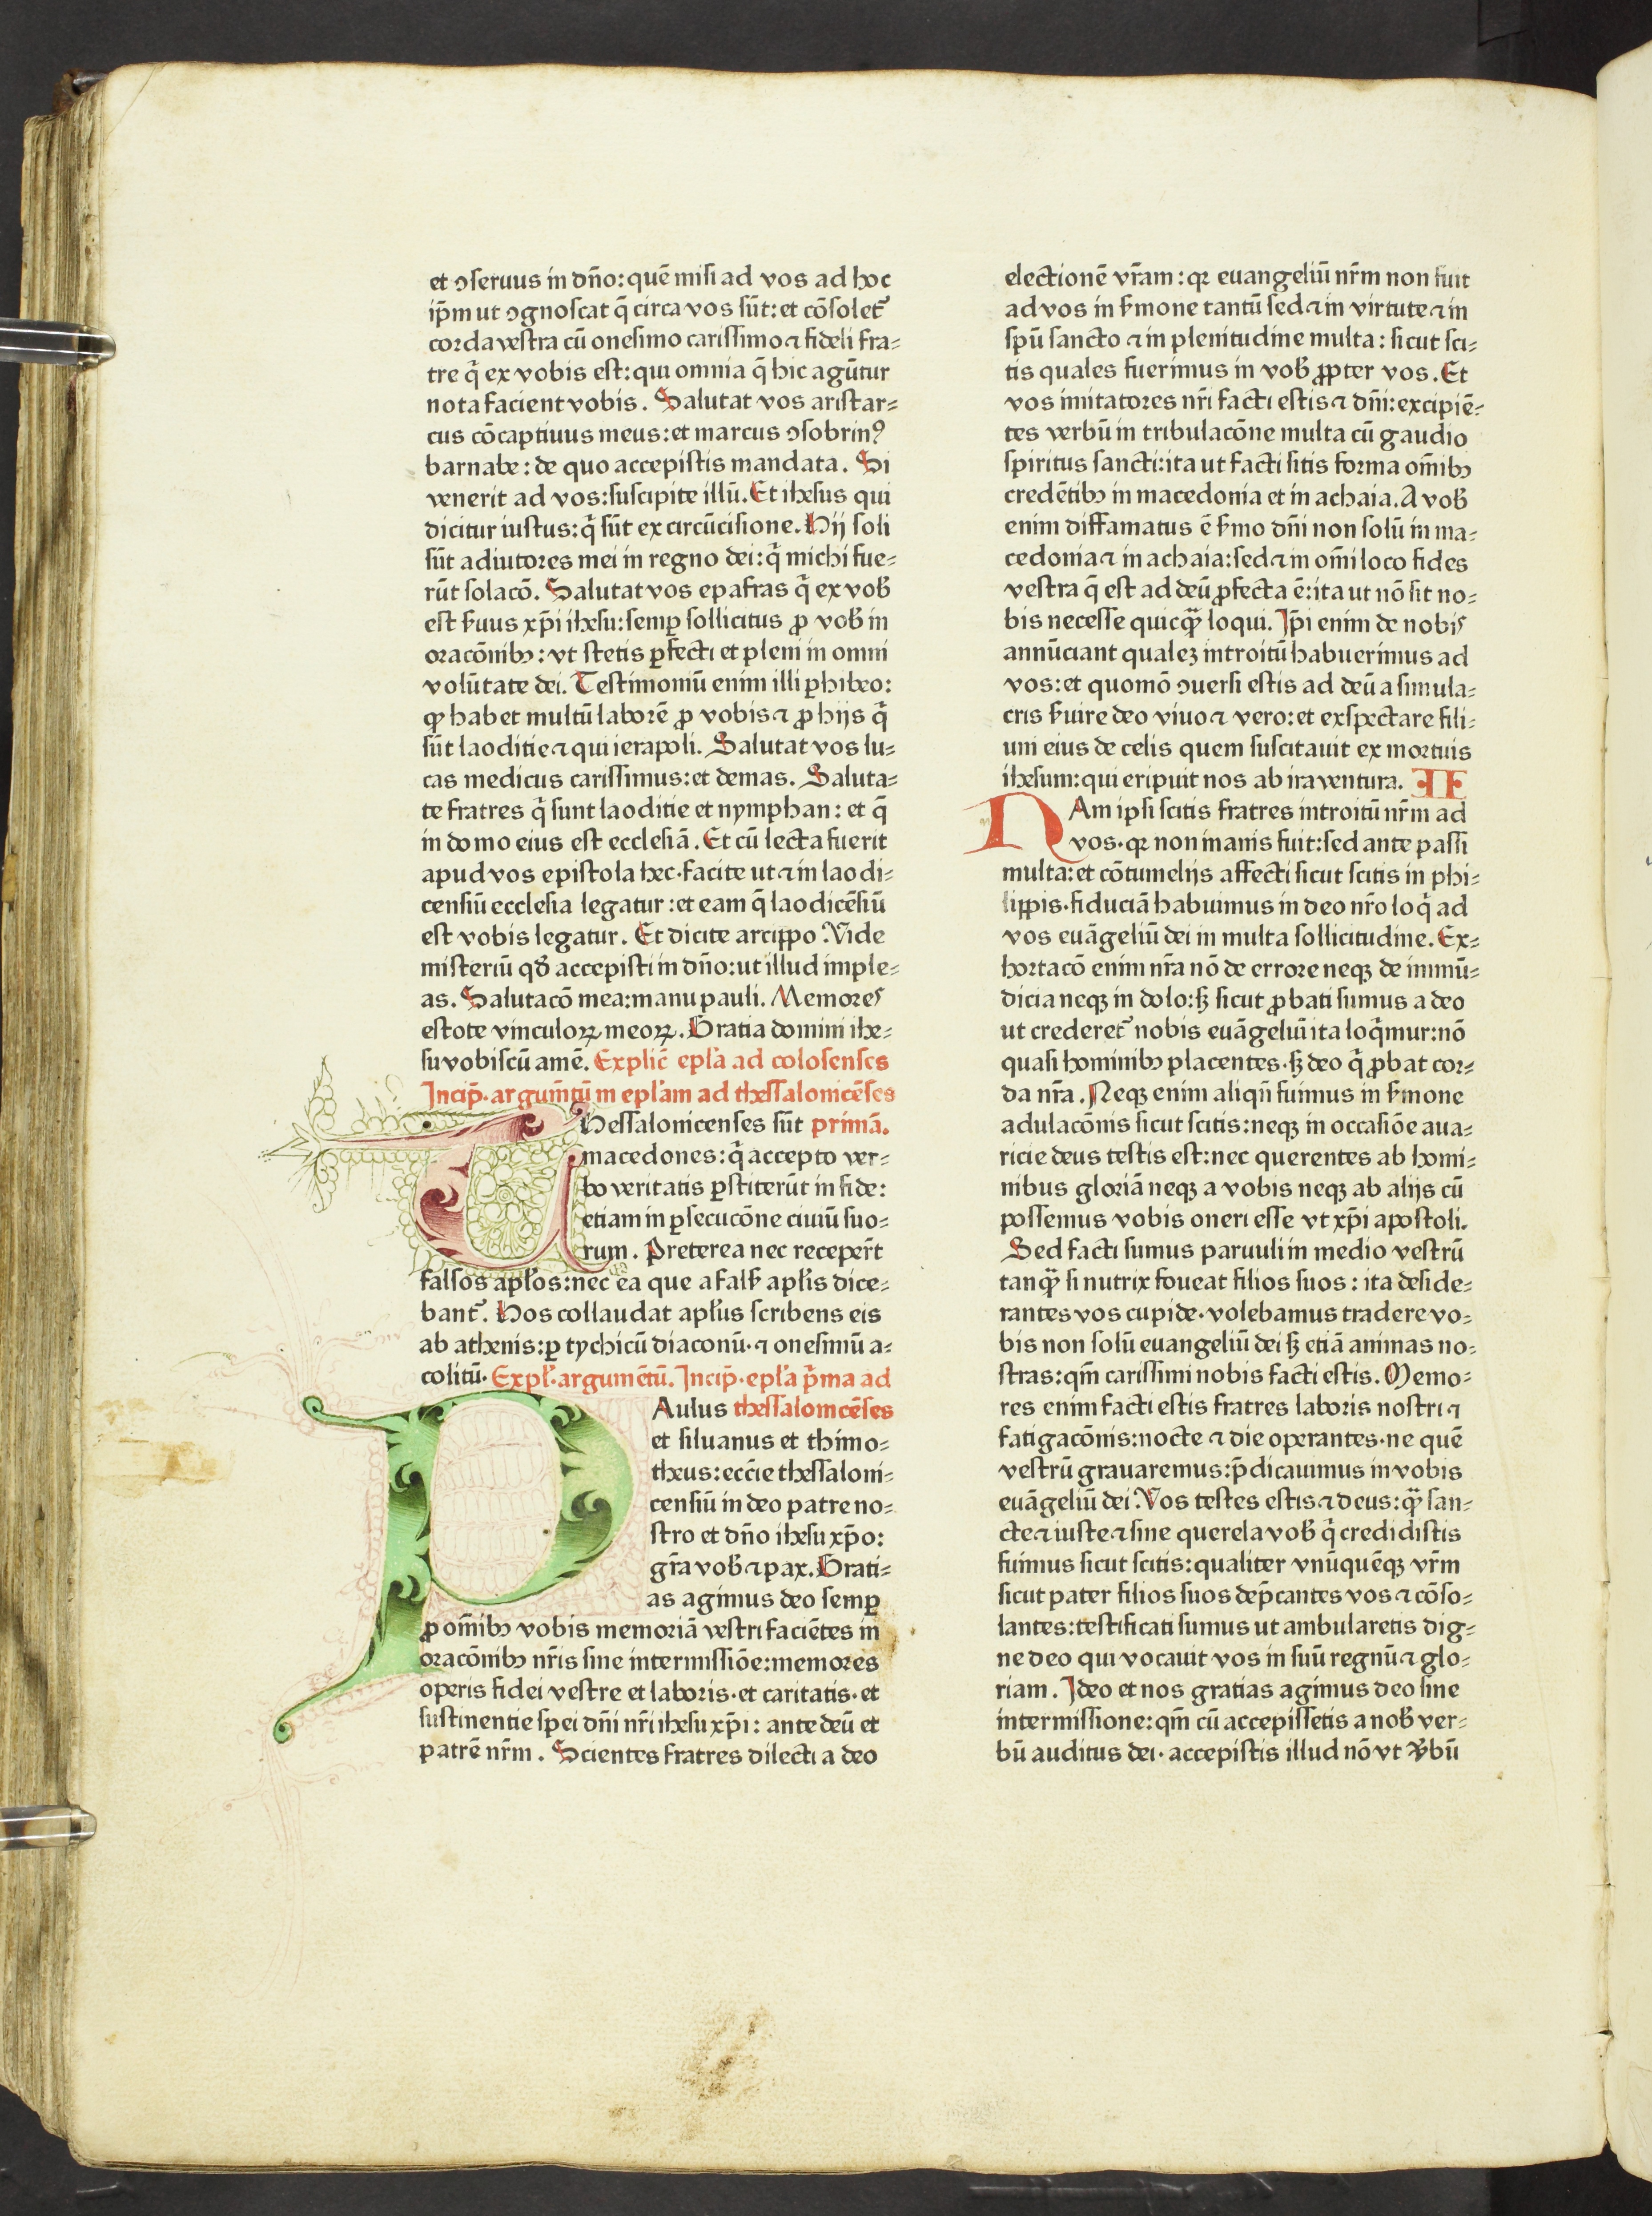 et ↄseruus in dn̄o: quē misi ad vos ad hoc
ip̄m ut ↄgnoscat q̄ circa vos sūt: et cōsolet᷑
corda vestra cū onesimo carissimo ⁊ fideli fra⸗
tre q̇ ex vobis est: qui omnia q̄ hic agūtur
nota facient vobis. Salutat vos aristar⸗
cus cōcaptiuus meus: et marcus ↄsobrinꝰ
barnabe: de quo accepistis mandata. Si
venerit ad vos: suscipite illū. Et ihesus qui
dicitur iustus: q̇ sūt ex circūcisione. Hij soli
sūt adiutores mei in regno dei: q̇ michi fue⸗
rūt solacō. Salutat vos epafras q̇ ex voƀ
est ẜuus xp̄i ihesu: semꝑ sollicitus ꝓ voƀ in
oracōnibꝫ: vt stetis ꝑfecti et pleni in omni
volūtate dei. Testimoniū enim illi ꝑhibeo:
ꝙ habet multū laborē ꝓ vobis ⁊ ꝓ hijs q̇
sūt laoditie ⁊ qui ierapoli. Salutat vos lu⸗
cas medicus carissimus: et demas. Saluta⸗
te fratres q̇ sunt laoditie et nymphan: et q̄
in domo eius est ecclesiā. Et cū lecta fuerit
apud vos epistola hec· facite ut ⁊ in laodi⸗
censiū ecclesia legatur: et eam q̄ laodicēsiū
est vobis legatur. Et dicite arcippo. Vide
misteriū qđ accepisti in dn̄o: ut illud imple⸗
as. Salutacō mea: manu pauli. Memores
estote vinculoꝝ meoꝝ. Gratia domini ihe⸗
su vobiscū amē. Explic̄ epl̄a ad colosenses
Incip̄· argum̄tū in epl̄am ad thessalonicēses
Thessalonicenses sūt primā.
macedones: q̇ accepto ver⸗
bo veritatis ꝑstiterūt in fide:
etiam in ꝑsecucōne ciuiū suo⸗
rum. Preterea nec recepert̄
falsos apl̄os: nec ea que a falẜ apl̄is dice⸗
bant᷑. Hos collaudat apl̄us scribens eis
ab athenis: ꝑ tychicū diaconū· ⁊ onesimū a⸗
colitū. Expl̄· argumētū. Incip̄· epl̄a p̄ma ad
PAulus thessalonicēses
et siluanus et thimo⸗
theus: ecc̄ie thessaloni⸗
censiū in deo patre no⸗
stro et dn̄o ihesu xp̄o:
gr̄a voƀ ⁊ pax. Grati⸗
as agimus deo semꝑ
ꝓ om̄ibꝫ vobis memoriā vestri faciētes in
oracōnibꝫ nr̄is sine intermissiōe: memores
operis fidei vestre et laboris· et caritatis· et
sustinentie spei dn̄i nr̄i ihesu xp̄i: ante deū et
patrē nr̄m. Scientes fratres dilecti a deo
electionē vr̄am: qꝛ euangeliū nr̄m non fuit
ad vos in ẜmone tantū sed ⁊ in virtute ⁊ in
spū sancto ⁊ in plenitudine multa: sicut sci⸗
tis quales fuerimus in voƀ ꝓpter vos. Et
vos imitatores nr̄i facti estis ⁊ dn̄i: excipiē⸗
tes verbū in tribulacōne multa cū gaudio
spiritus sancti: ita ut facti sitis forma om̄ibꝫ
credētibꝫ in macedonia et in achaia. A voƀ
enim diffamatus ē ẜmo dn̄i non solū in ma⸗
cedonia ⁊ in achaia: sed ⁊ in om̄i loco fides
vestra q̄ est ad deū ꝓfecta ē: ita ut nō sit no⸗
bis necesse quicꝙ̄ loqui. Ip̄i enim de nobis
annūciant qualeꝫ introitū habuerimus ad
vos: et quomō ↄuersi estis ad deū a simula⸗
cris ẜuire deo viuo ⁊ vero: et exspectare fili⸗
um eius de celis quem suscitauit ex mortuis
ihesum: qui eripuit nos ab ira ventura. II
NAm ipsi scitis fratres introitū nr̄m ad
vos· qꝛ non inanis fuit: sed ante passi
multa: et cōtumelijs affecti sicut scitis in phi⸗
lippis· fiduciā habuimus in deo nr̄o loq̇ ad
vos euāgeliū dei in multa sollicitudine. Ex⸗
hortacō enim nr̄a nō de errore neqꝫ de inmū⸗
dicia neqꝫ in dolo: sꝫ sicut ꝓbati sumus a deo
ut crederet᷑ nobis euāgeliū ita loq̇mur: nō
quasi hominibꝫ placentes· sꝫ deo q̇ ꝓbat cor⸗
da nr̄a. Neqꝫ enim aliqn̄ fuimus in ẜmone
adulacōnis sicut scitis: neqꝫ in occasiōe aua⸗
ricie deus testis est: nec querentes ab homi⸗
nibus gloriā neqꝫ a vobis neqꝫ ab alijs cū
possemus vobis oneri esse vt xp̄i apostoli.
Sed facti sumus paruuli in medio vestrū
tanꝙ̄ si nutrix foueat filios suos: ita deside⸗
rantes vos cupide· volebamus tradere vo⸗
bis non solū euangeliū dei sꝫ etiā animas no⸗
stras: qm̄ carissimi nobis facti estis. Memo⸗
res enim facti estis fratres laboris nostri ⁊
fatigacōnis: nocte ⁊ die operantes· ne quē
vestrū grauaremus: p̄dicauimus in vobis
euāgeliū dei. Vos testes estis ⁊ deus: ꝙ̄ san⸗
cte ⁊ iuste ⁊ sine querela voƀ q̇ credidistis
fuimus sicut scitis: qualiter vnūquēqꝫ vr̄m
sicut pater filios suos dep̄cantes vos ⁊ cōso⸗
lantes: testificati sumus ut ambularetis dig⸗
ne deo qui vocauit vos in suū regnū ⁊ glo⸗
riam. Ideo et nos gratias agimus deo sine
intermissione: qm̄ cū accepissetis a noƀ ver⸗
bū auditus dei· accepistis illud nō vt v̄bū